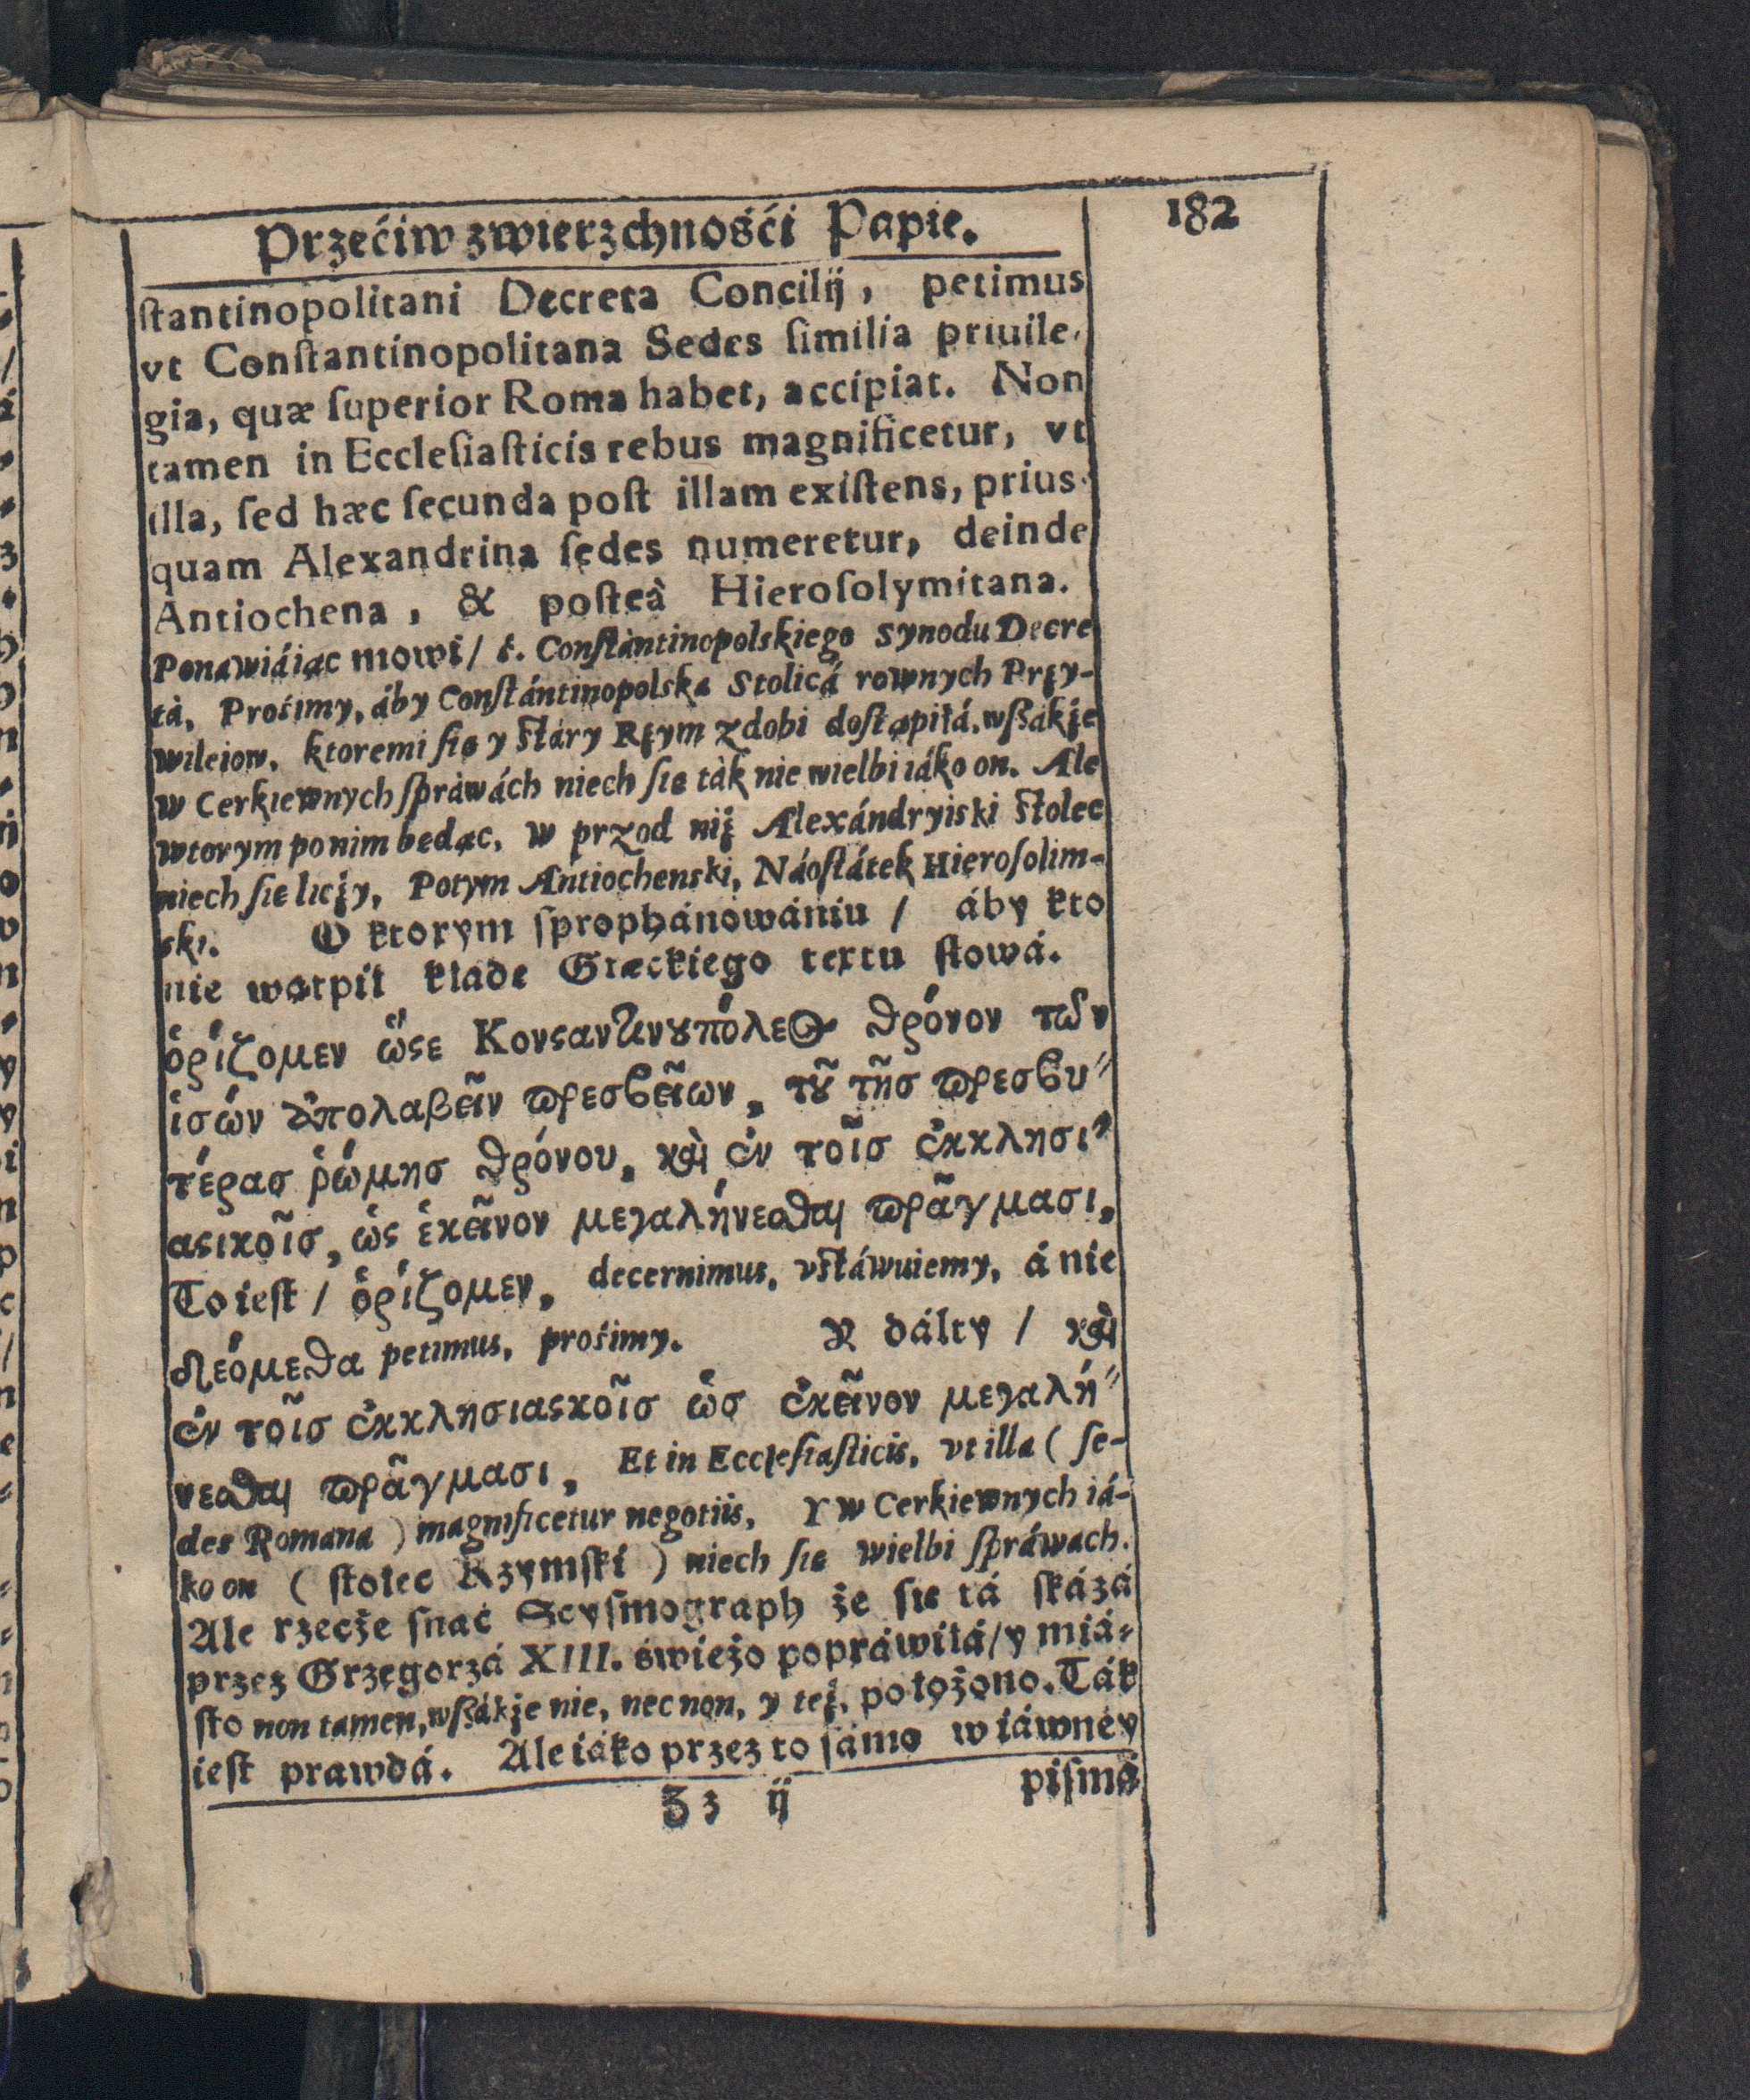 Przećiw zwierzchnośći Papie.
182
ſtantinopolitani Decreta Concilij, petimus
vt Conſtantinopolitana Sedes ſimilia priuile-
gia, quæ ſuperior Roma habet, accipiat. Non
tamen in Eccleſiaſticis rebus magnificetur, vt
illa, ſed hæc ſecunda poſt illam exiſtens, prius-
quam Alexandrina ſedes numeretur, deinde
Antiochena, & poſteà Hieroſolymitana.
Ponawiáiąc mowi / t. Conſtàntinopolskiego Synodu Decre
tà, Prośimy, áby Conſtántinopolska Stolicá rownych Przy-
wileiow, ktoremi ſię y ſtáry Rzym zdobi doſtąpiłá, wſzákże
w Cerkiewnych ſpráwách niech ſie ták nie wielbi iáko on. Ale
wtorym po nim będąc, w przod niż Alexándryiski ſtolec
niech ſie liczy, Potym Antiochenski, Náoſtátek Hieroſolim-
ski. O ktorym ſprophánowániu / áby kto
nie wątpił kłade Græckiego textu ſłowá.
ὁρίζομεν ὥϛε Κονϛαντινȣπόλεως θρόνον τῶν
ἰσών ἀπολαβεῖν πρεσβείων, τȣ͂ τῆσ πρεσβυ-
τέρασ ῥώμησ θρόνου, καὶ ἐν τοῖσ ἐκκλησι-
αϛικοῖσ, ὡς ἐκεῖνον μεγαλήνεσθαι πρᾶγμασι,
To ieſt / ὁρίζομεν, decernimus, vſtáwuiemy, á nie
δεόμεθα petimus, prośimy. Y dáley / καὶ
ἐν τοῖσ ἐκκλησιαϛκοῖσ ὡσ ἐκεῖνον μεγαλή-
νεσθαι πρᾶγμασι, Et in Eccleſiaſticis, vt illa ( ſe-
des Romana ) magnificetur negotiis, Y w Cerkiewnych iá-
ko on ( ſtolec Rzymſki ) niech ſie wielbi ſpráwach.
Ale rzecże ſnać Scyſmograph że ſie tá ſkázá
przez Grzegorzá XIII. świeżo popráwiłá / y miá-
ſto non tamen, wſzákże nie, nec non, y też, położono. Ták
ieſt prawdá. Ale iáko przez to ſámo w iáwney
Zz ij
piſmá